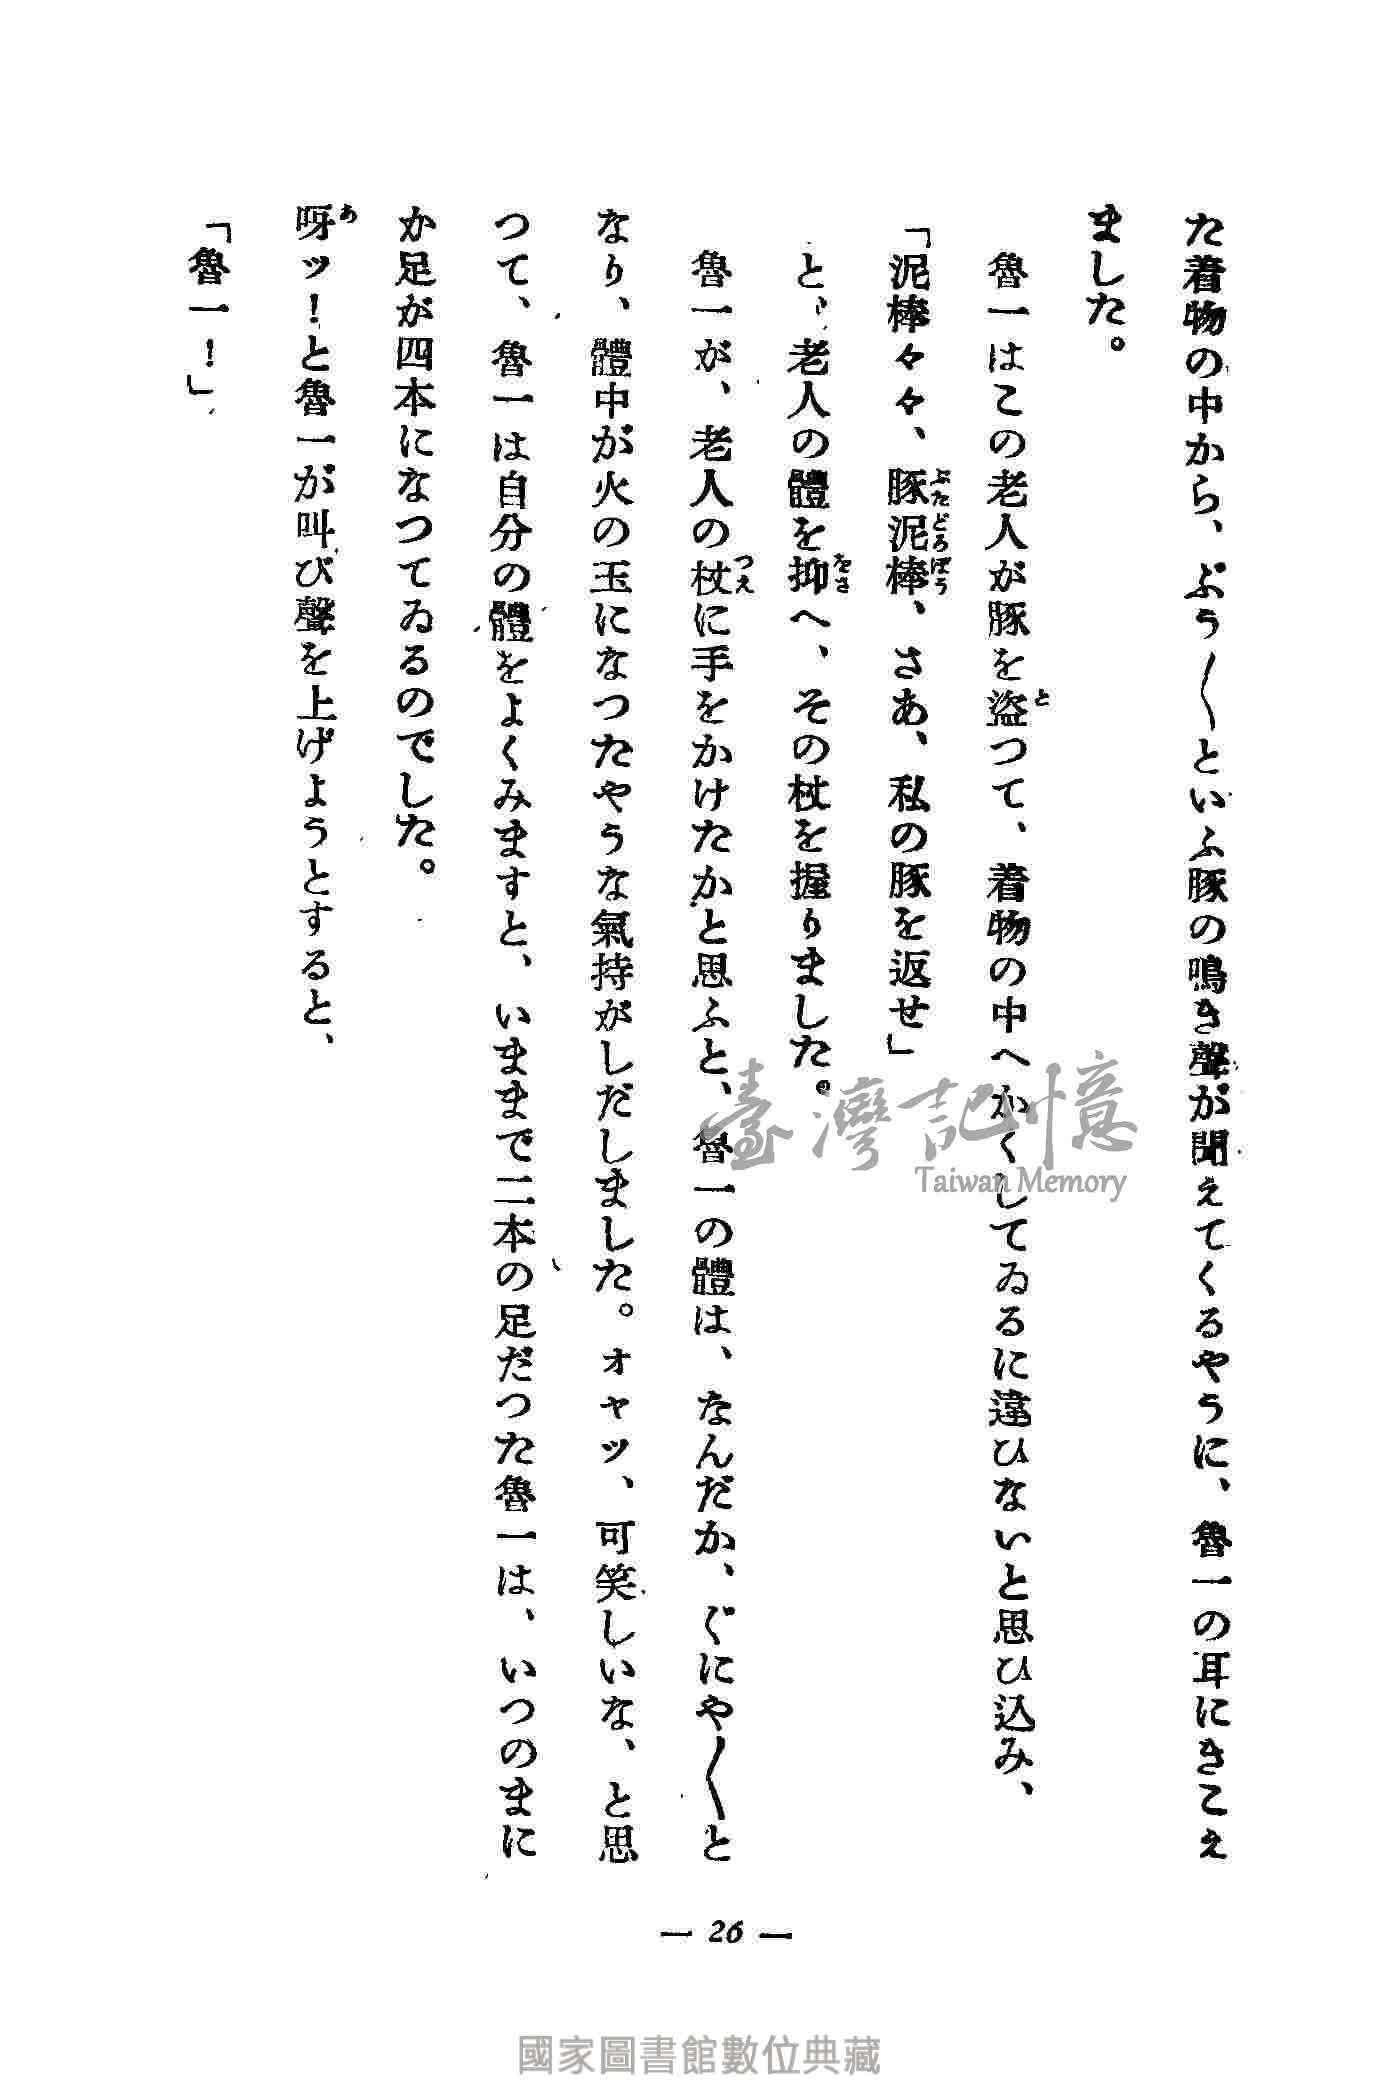 た着物の中から、ぷう〱といふ豚の鳴き聲が聞えてくるやうに、魯一の耳にきこえ
ました。
魯一はこの老人が豚を盜つて、着物の中へかくしてゐるに違ひないと思ひ込み、
「泥棒々々、豚泥棒、さあ、私の豚を返せ」
と、老人の體を抑へ、その杖を握りました。
魯一が、老人の杖に手をかけたかと思ふと、魯一の體は、なんだか、ぐにや〱と
なり、體中が火の玉になつたやうな氣持がしだしました。オヤッ、可笑しいな、と思
つて、魯一は自分の體をよくみますと、いままで二本の足だつた魯一は、いつのまに
か足が四本になつてゐるのでした。
呀ッ！と魯一が叫び聲を上げようとすると、
「魯一！」
— 26 —
臺灣記憶
Taiwan Memory
國家圖書館數位典藏